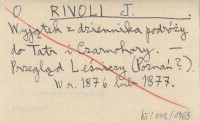 O RIVOLI J.
Wyjątek z dziennika podróży
do Tatr i Czarnohory. —
Przegląd Leśniczy (Poznań?).
W r. 1876 lub 1877.